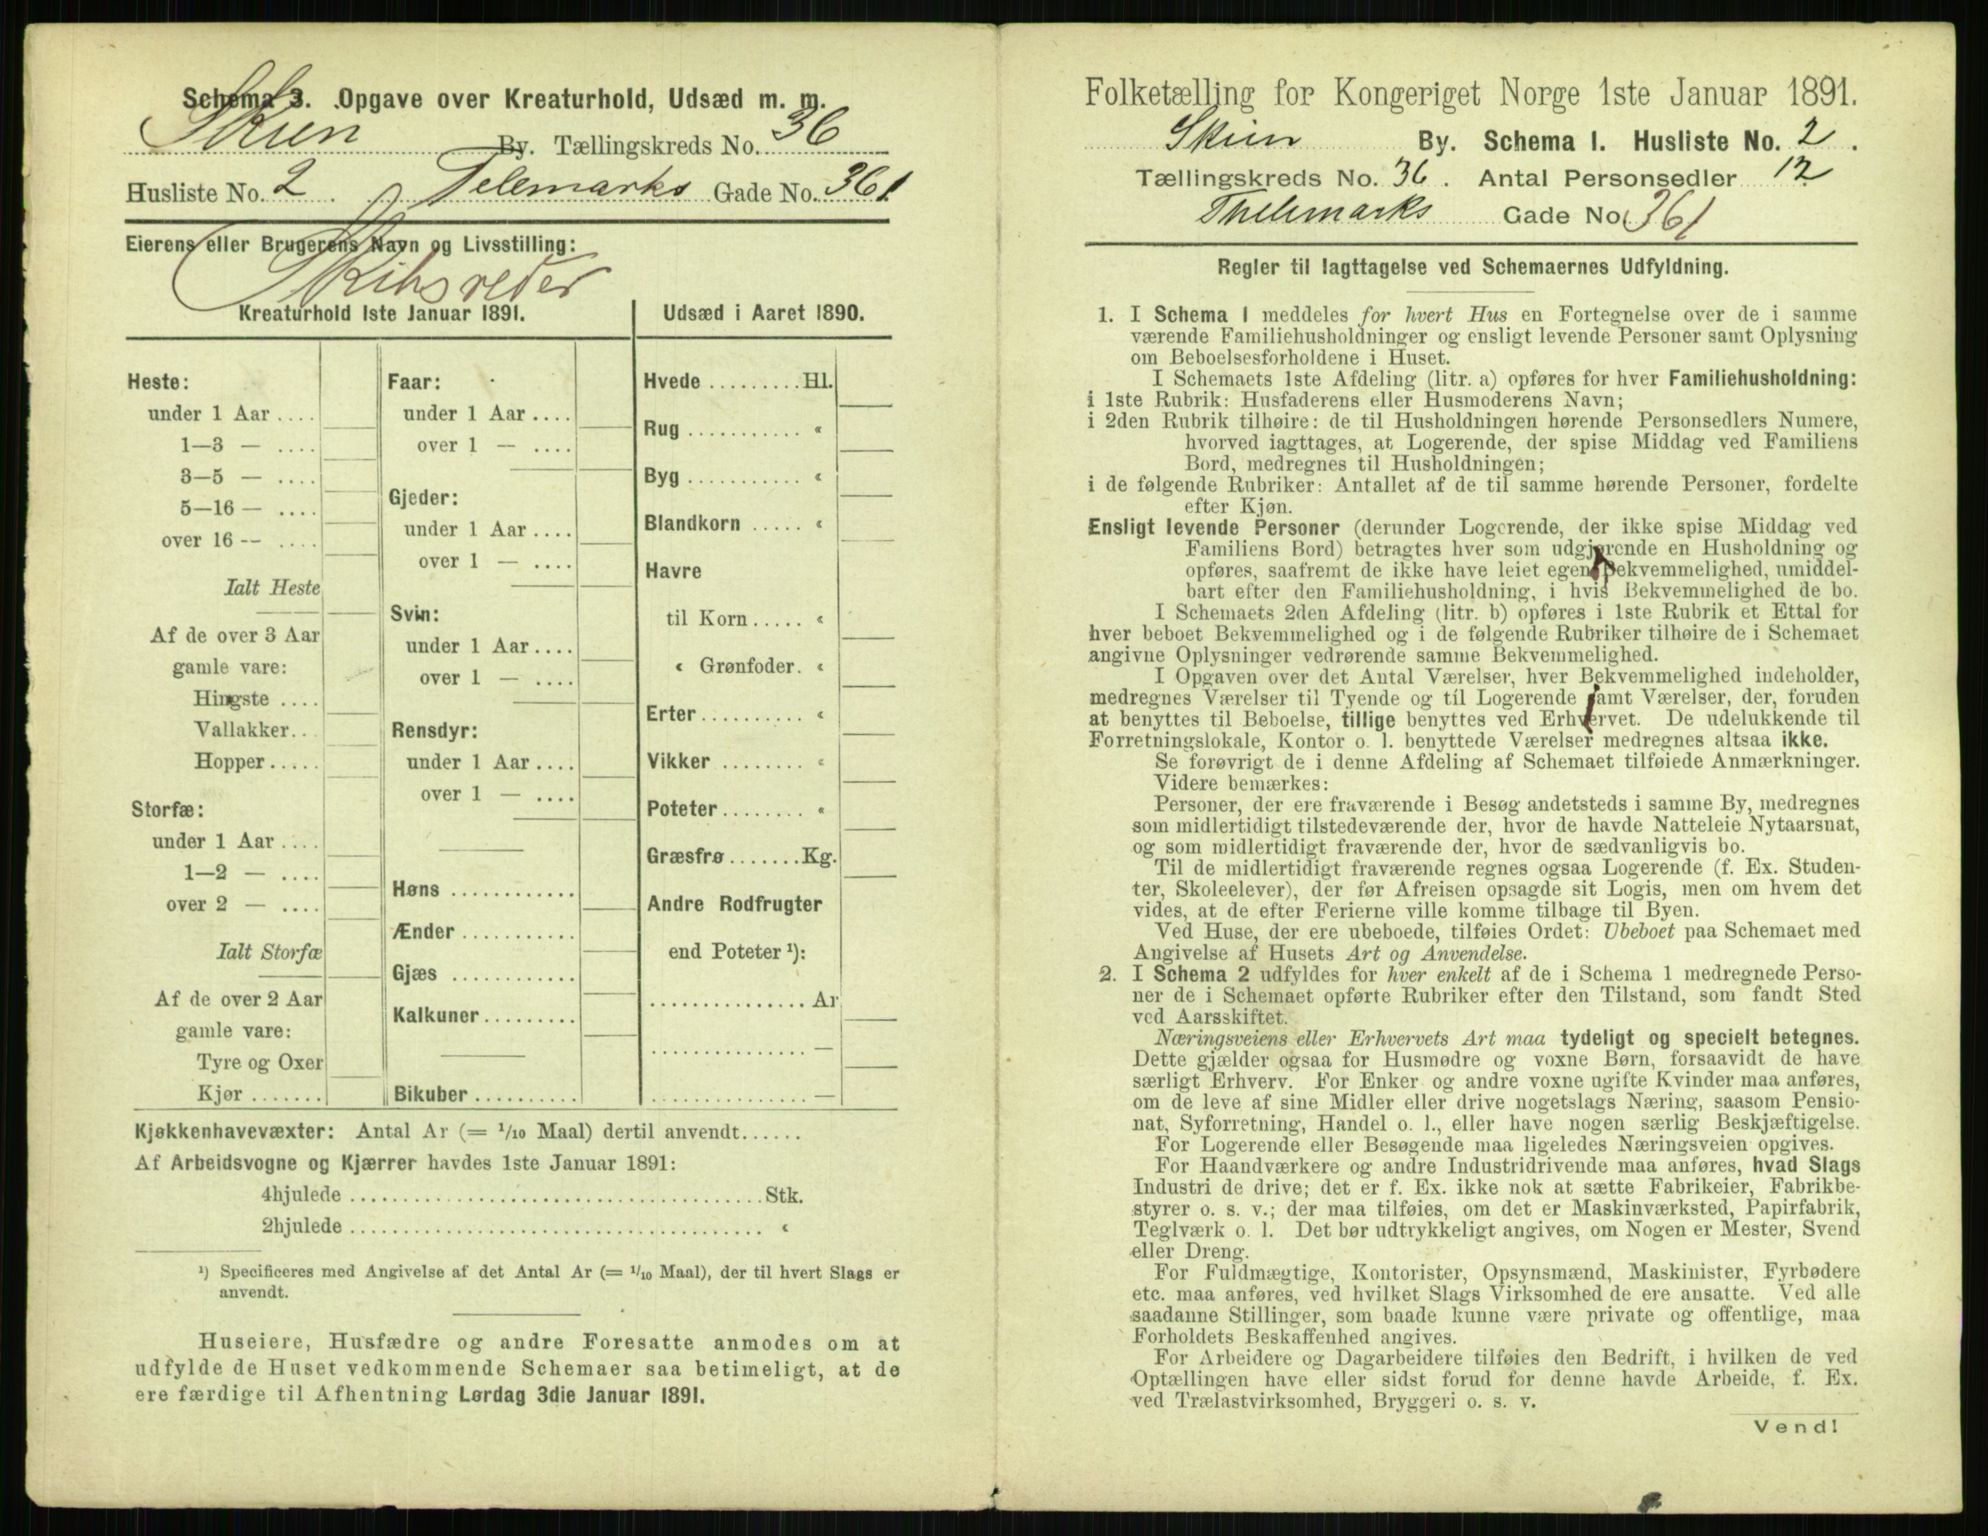 Schema 3. Opgave over Kreaturhold, Udsæd m. m.
Skien By. Tællingskreds No. 36
Husliste No. 2 . Telemarks Gade No. 361
Eierens eller Brugerens Navn og Livsstilling:
Skibsreder
Kreaturhold 1ste Januar 1891.
Heste:
under 1 Aar ....
1—3 — ....
3—5 — ....
5—16 — ....
over 16 — ....
Ialt Heste
Af de over 3 Aar
gamle vare:
Hingste ....
Vallakker...
Hopper.....
Storfæ:
under 1 Aar ....
1—2 — ....
over 2 — ....
Ialt Storfæ
Af de over 2 Aar
gamle vare:
Tyre og Oxer
Kjør .......
Faar:
under 1 Aar ....
over 1 — ....
Gjeder:
under 1 Aar ....
over 1 — ....
Svin:
under 1 Aar ....
over 1 — ....
Rensdyr:
under 1 Aar ....
over 1 — ....
Høns ............
Ænder ...........
Gjæs ............
Kalkuner.........
Bikuber ..........
Udsæd i Aaret 1890.
Hvede .........Hl.
Rug ........... «
Byg ........... «
Blandkorn ..... «
Havre
til Korn ..... «
« Grønfoder. «
Erter.......... «
Vikker ........ «
Poteter ........ «
Græsfrø .......Kg.
Andre Rodfrugter
end Poteter ¹):
............... Ar
............... —
............... —
Kjøkkenhavevæxter: Antal Ar (= 1/10 Maal) dertil anvendt......
Af Arbeidsvogne og Kjærrer havdes 1ste Januar 1891:
4hjulede ........................................Stk.
2hjulede ........................................ «
¹) Specificeres med Angivelse af det Antal Ar (= 1/10 Maal), der til hvert Slags er
anvendt.
Huseiere, Husfædre og andre Foresatte anmodes om at
udfylde de Huset vedkommende Schemaer saa betimeligt, at de
ere færdige til Afhentning Lørdag 3die Januar 1891.
Folketælling for Kongeriget Norge 1ste Januar 1891.
Skien By. Schema I. Husliste No. 2 .
Tællingskreds No. 36 . Antal Personsedler 12
Thelemarks Gade No. 361
Regler til Iagttagelse ved Schemaernes Udfyldning.
1. I Schema 1 meddeles for hvert Hus en Fortegnelse over de i samme
værende Familiehusholdninger og ensligt levende Personer samt Oplysning
om Beboelsesforholdene i Huset.
I Schemaets 1ste Afdeling (litr. a) opføres for hver Familiehusholdning:
i 1ste Rubrik: Husfaderens eller Husmoderens Navn;
i 2den Rubrik tilhøire: de til Husholdningen hørende Personsedlers Numere,
hvorved iagttages, at Logerende, der spise Middag ved Familiens
Bord, medregnes til Husholdningen;
i de følgende Rubriker: Antallet af de til samme hørende Personer, fordelte
efter Kjøn.
Ensligt levende Personer (derunder Logerende, der ikke spise Middag ved
Familiens Bord) betragtes hver som udgjørende en Husholdning og
opføres, saafremt de ikke have leiet egen Bekvemmelighed, umiddel-
bart efter den Familiehusholdning, i hvis Bekvemmelighed de bo.
I Schemaets 2den Afdeling (litr. b) opføres i 1ste Rubrik et Ettal for
hver beboet Bekvemmelighed og i de følgende Rubriker tilhøire de i Schemaet
angivne Oplysninger vedrørende samme Bekvemmelighed.
I Opgaven over det Antal Værelser, hver Bekvemmelighed indeholder,
medregnes Værelser til Tyende og til Logerende samt Værelser, der, foruden
at benyttes til Beboelse, tillige benyttes ved Erhvervet. De udelukkende til
Forretningslokale, Kontor o. l. benyttede Værelser medregnes altsaa ikke.
Se forøvrigt de i denne Afdeling af Schemaet tilføiede Anmærkninger.
Videre bemærkes:
Personer, der ere fraværende i Besøg andetsteds i samme By, medregnes
som midlertidigt tilstedeværende der, hvor de havde Natteleie Nytaarsnat,
og som midlertidigt fraværende der, hvor de sædvanligvis bo.
Til de midlertidigt fraværende regnes ogsaa Logerende (f. Ex. Studen-
ter, Skoleelever), der før Afreisen opsagde sit Logis, men om hvem det
vides, at de efter Ferierne ville komme tilbage til Byen.
Ved Huse, der ere ubeboede, tilføies Ordet: Ubeboet paa Schemaet med
Angivelse af Husets Art og Anvendelse.
2. I Schema 2 udfyldes for hver enkelt af de i Schema 1 medregnede Perso-
ner de i Schemaet opførte Rubriker efter den Tilstand, som fandt Sted
ved Aarsskiftet.
Næringsveiens eller Erhvervets Art maa tydeligt og specielt betegnes.
Dette gjælder ogsaa for Husmødre og voxne Børn, forsaavidt de have
særligt Erhverv. For Enker og andre voxne ugifte Kvinder maa anføres,
om de leve af sine Midler eller drive nogetslags Næring, saasom Pensio-
nat, Syforretning, Handel o. l., eller have nogen særlig Beskjæftigelse.
For Logerende eller Besøgende maa ligeledes Næringsveien opgives.
For Haandværkere og andre Industridrivende maa anføres, hvad Slags
Industri de drive; det er f. Ex. ikke nok at sætte Fabrikeier, Fabrikbe-
styrer o. s. v.; der maa tilføies, om det er Maskinværksted, Papirfabrik,
Teglværk o. l. Det bør udtrykkeligt angives, om Nogen er Mester, Svend
eller Dreng.
For Fuldmægtige, Kontorister, Opsynsmænd, Maskinister, Fyrbødere
etc. maa anføres, ved hvilket Slags Virksomhed de ere ansatte. Ved alle
saadanne Stillinger, som baade kunne være private og offentlige, maa
Forholdets Beskaffenhed angives.
For Arbeidere og Dagarbeidere tilføies den Bedrift, i hvilken de ved
Optællingen have eller sidst forud for denne havde Arbeide, f. Ex.
ved Trælastvirksomhed, Bryggeri o. s. v.
Vend!